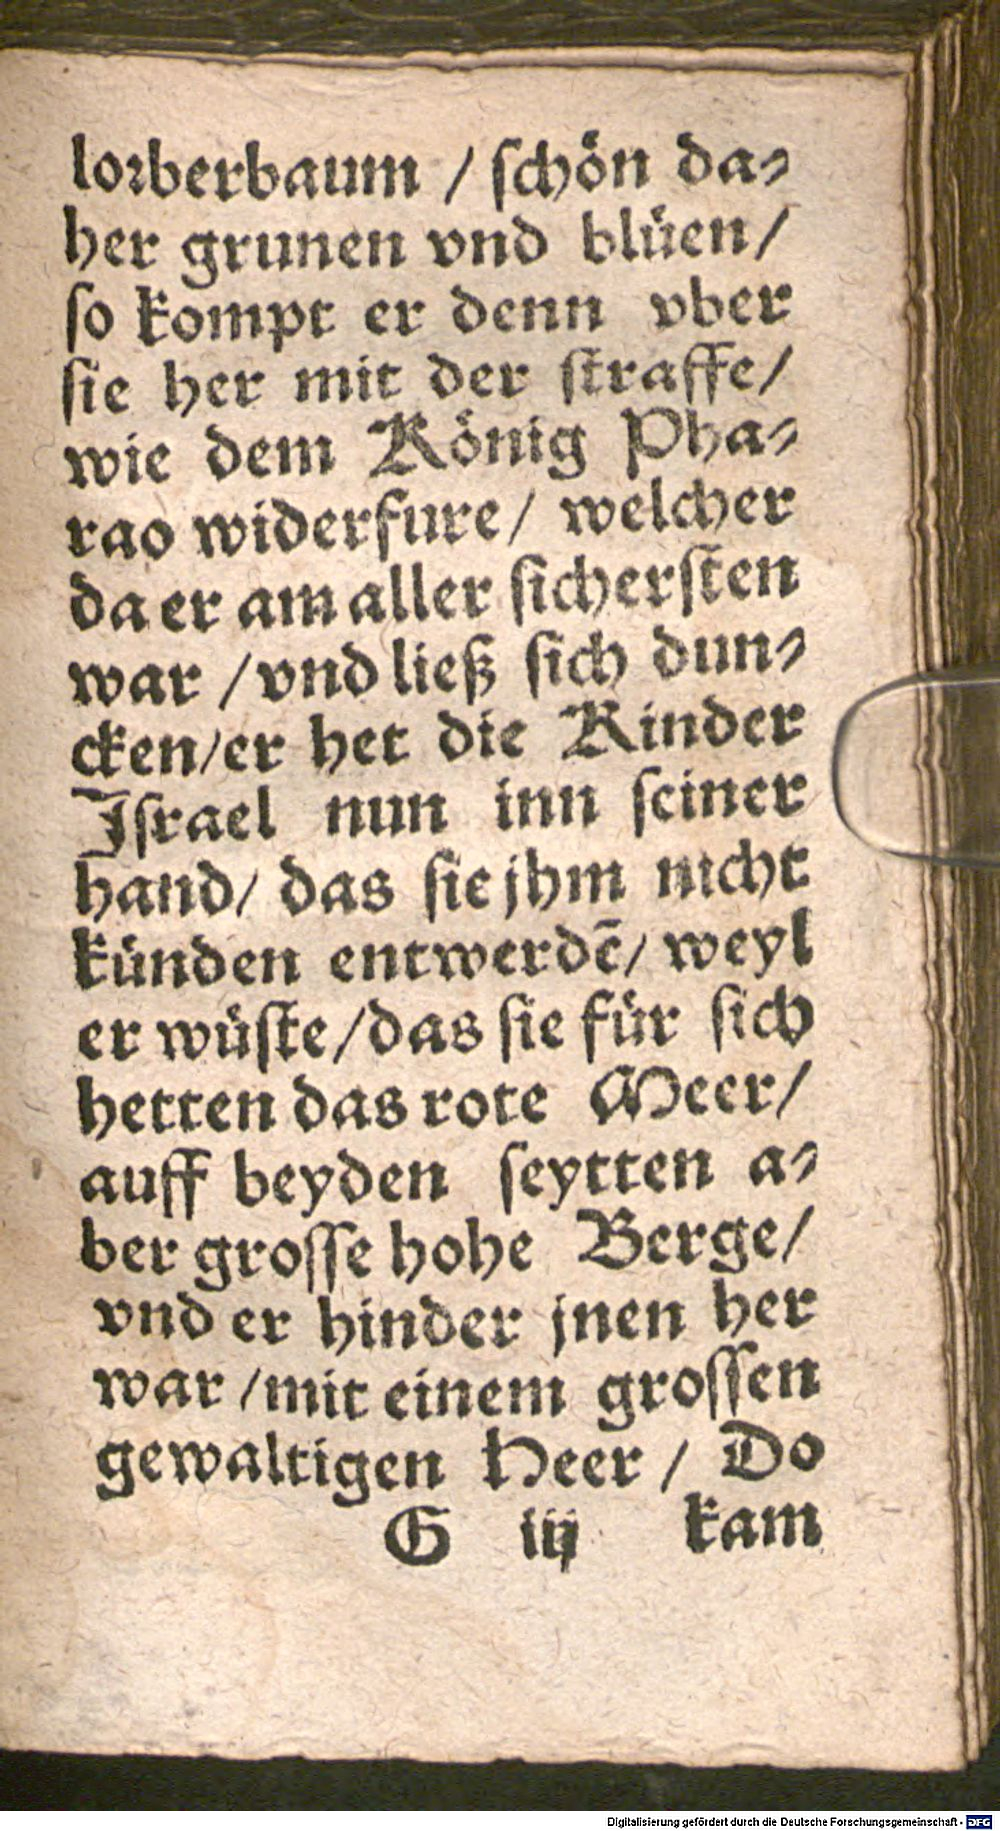 lorberbaum / ſchön da⸗
her grunen vnd blüen/
ſo kompt er denn vber
ſie her mit der ſtraffe/
wie dem König Pha⸗
rao widerfure/ welcher
da er am aller ſicherſten
war /vnd ließ ſich dun⸗
cken/er het die Kinder
Iſrael nun inn ſeiner
hand/ das ſie jhm nicht
künden entwerdē/ weyl
er wüſte/das ſie für ſich
hetten das rote Meer/
auff beyden ſeytten a⸗
ber groſſe hohe Berge/
vnd er hinder jnen her
war /mit einem groſſen
gewaltigen Heer / Do
G iij kam
Digitalisierung gefördert durch die Deutsche Forschungsgemeinschaft - DFG